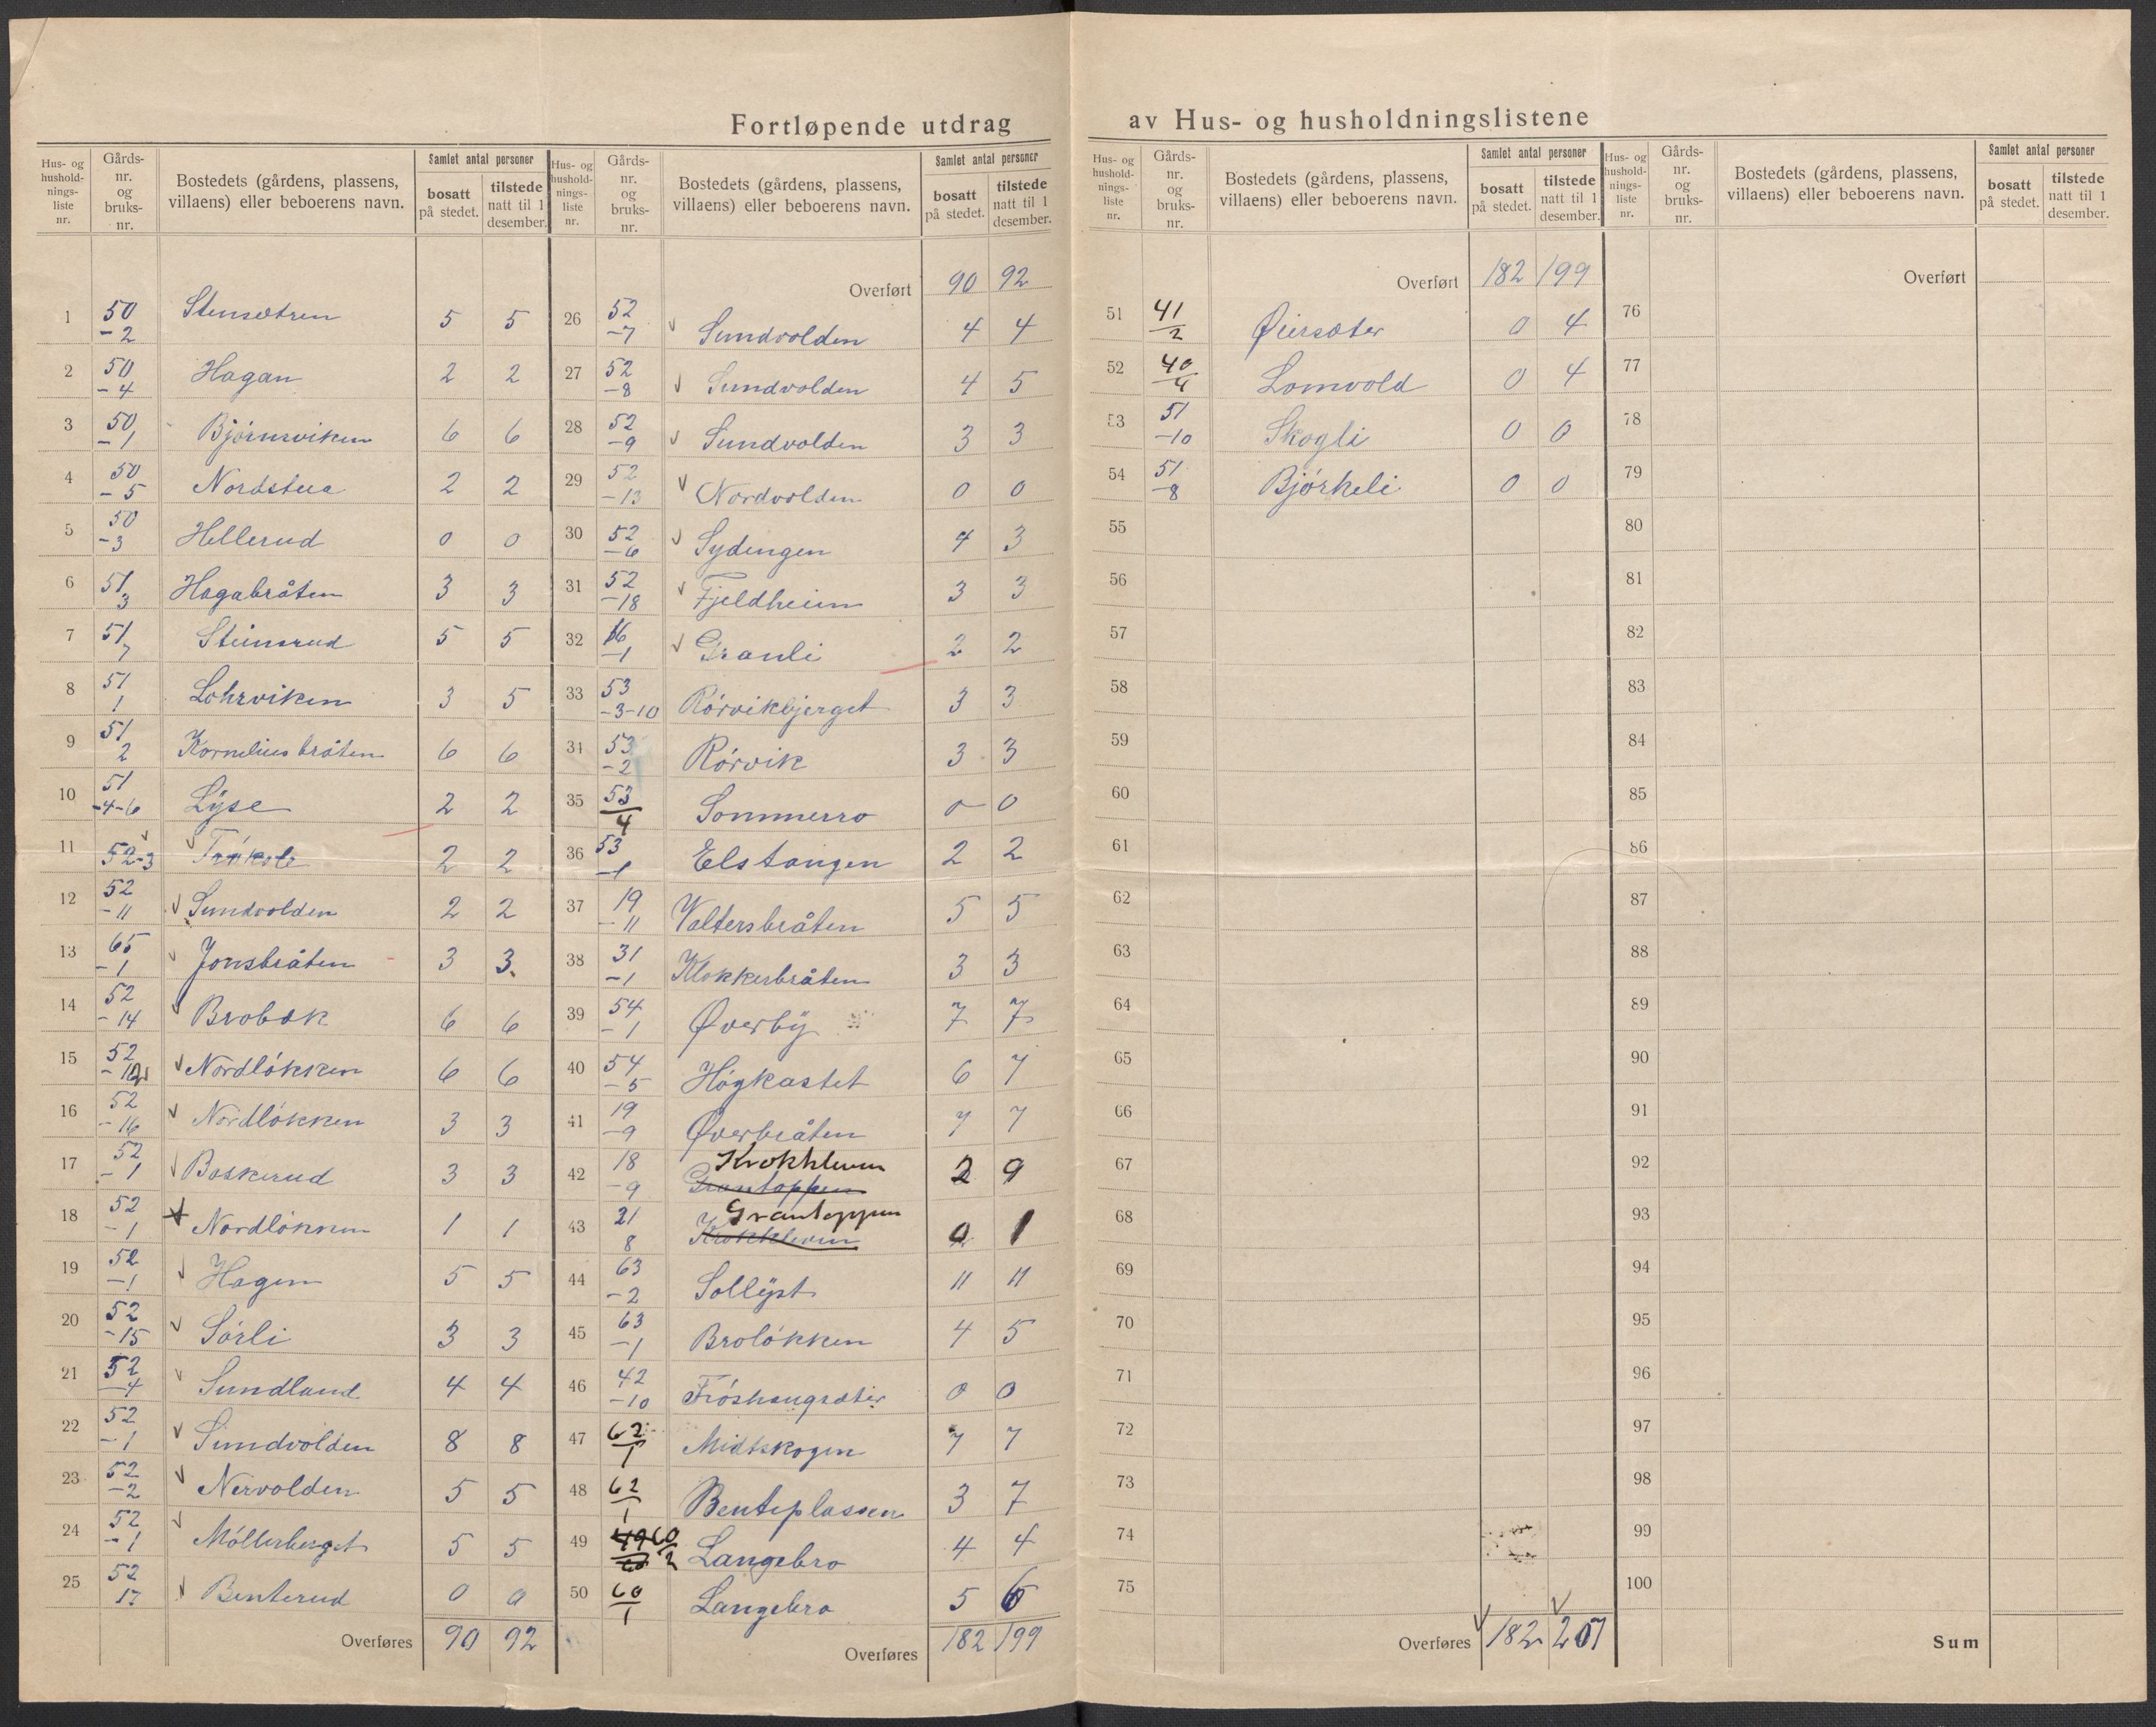 Fortløpende utdrag av Hus- og husholdningslistene
Hus- og husholdnings-liste nr. | Gårds-nr. og bruks-nr. | Bostedets (gårdens, plassens, villaens) eller beboerens navn. | Samlet antal personer | bosatt på stedet. | tilstede natt til 1 desember.
1 50 -2 Stensetren 5 5
2 50 -4 Hagan 2 2
3 50 -1 Bjørnsviken 6 6
4 50 -5 Nordstua 2 2
5 50 -3 Hellerud 0 0
6 51 3 Hagabråten 3 3
7 51 7 Steinsrud 5 5
8 51 1 Lohrviken 3 5
9 51 2 Korneliusbråten 6 6
10 51 -4-6 Lyse 2 2
11 52-3 2 2
12 52 -11 Sundvolden 2 2
13 65 -1 Jonsbråten 3 3
14 52 -14 Brobæk 6 6
15 52 Nordløkken 6 6
16 52 -16 Nordløkken 3 3
17 52 -1 Boskerud 3 3
18 52 -1 Nordløkken 1 1
19 52 -1 Hagen 5 5
20 52 -15 Sørli 3 3
21 52 -4 Sundland 4 4
22 52 -1 Sundvolden 8 8
23 52 -2 Nervolden 5 5
24 52 -1 Møllerberget 5 5
25 52 17 Benterud 0 0
Overføres 90 92
Hus- og husholdnings-liste nr. | Gårds-nr. og bruks-nr. | Bostedets (gårdens, plassens, villaens) eller beboerens navn. | Samlet antal personer | bosatt på stedet. | tilstede natt til 1 desember.
Overført 90 92
26 52 -7 Sundvolden 4 4
27 52 -8 Sundvolden 4 5
28 52 -9 Sundvolden 3 3
29 52 -13 Nordvolden 0 0
30 52 -6 Sydengen 4 3
31 52 -18 Fjeldheim 3 3
32 16 -1 Granli 2 2
33 53 -3-10 Rørvikbjerget 3 3
34 53 -2 Rørvik 3 3
35 53 4 Sommerro 0 0
36 53 -1 Elstangen 2 2
37 19 -11 Valtersbråten 5 5
38 31 -1 Klokkerbråten 3 3
39 54 -1 Øverby 7 7
40 54 -5 Høgkastet 6 7
41 19 -9 Øverbråten 7 7
42 18 -9 Krokkleven Grantoppen 2 9
43 21 8 Grantoppen Krokkleven 0 1
44 63 -2 Sollyst 11 11
45 63 -1 Broløkken 4 5
46 42 -10 Frøshaugsæter 0 0
47 62 1 Midtskogen 7 7
48 62 1 Benteplassen 3 7
49 60 2 Langebro 4 4
50 60 1 Langebro 5 6
Overføres 182 199
Hus- og husholdnings-liste nr. | Gårds-nr. og bruks-nr. | Bostedets (gårdens, plassens, villaens) eller beboerens navn. | Samlet antal personer | bosatt på stedet. | tilstede natt til 1 desember.
Overført 182 199
51 41 2 Øiersæter 0 4
52 40 4 Lomvold 0 4
53 51 -10 Skogli 0 0
54 51 -8 Bjørkeli 0 0
55
56
57
58
59
60
61
62
63
64
65
66
67
68
69
70
71
72
73
74
75
Overføres 182 207
Hus- og husholdnings-liste nr. | Gårds-nr. og bruks-nr. | Bostedets (gårdens, plassens, villaens) eller beboerens navn. | Samlet antal personer | bosatt på stedet. | tilstede natt til 1 desember.
Overført
76
77
78
79
80
81
82
83
84
85
86
87
88
89
90
91
92
93
94
95
96
97
98
99
100
Sum